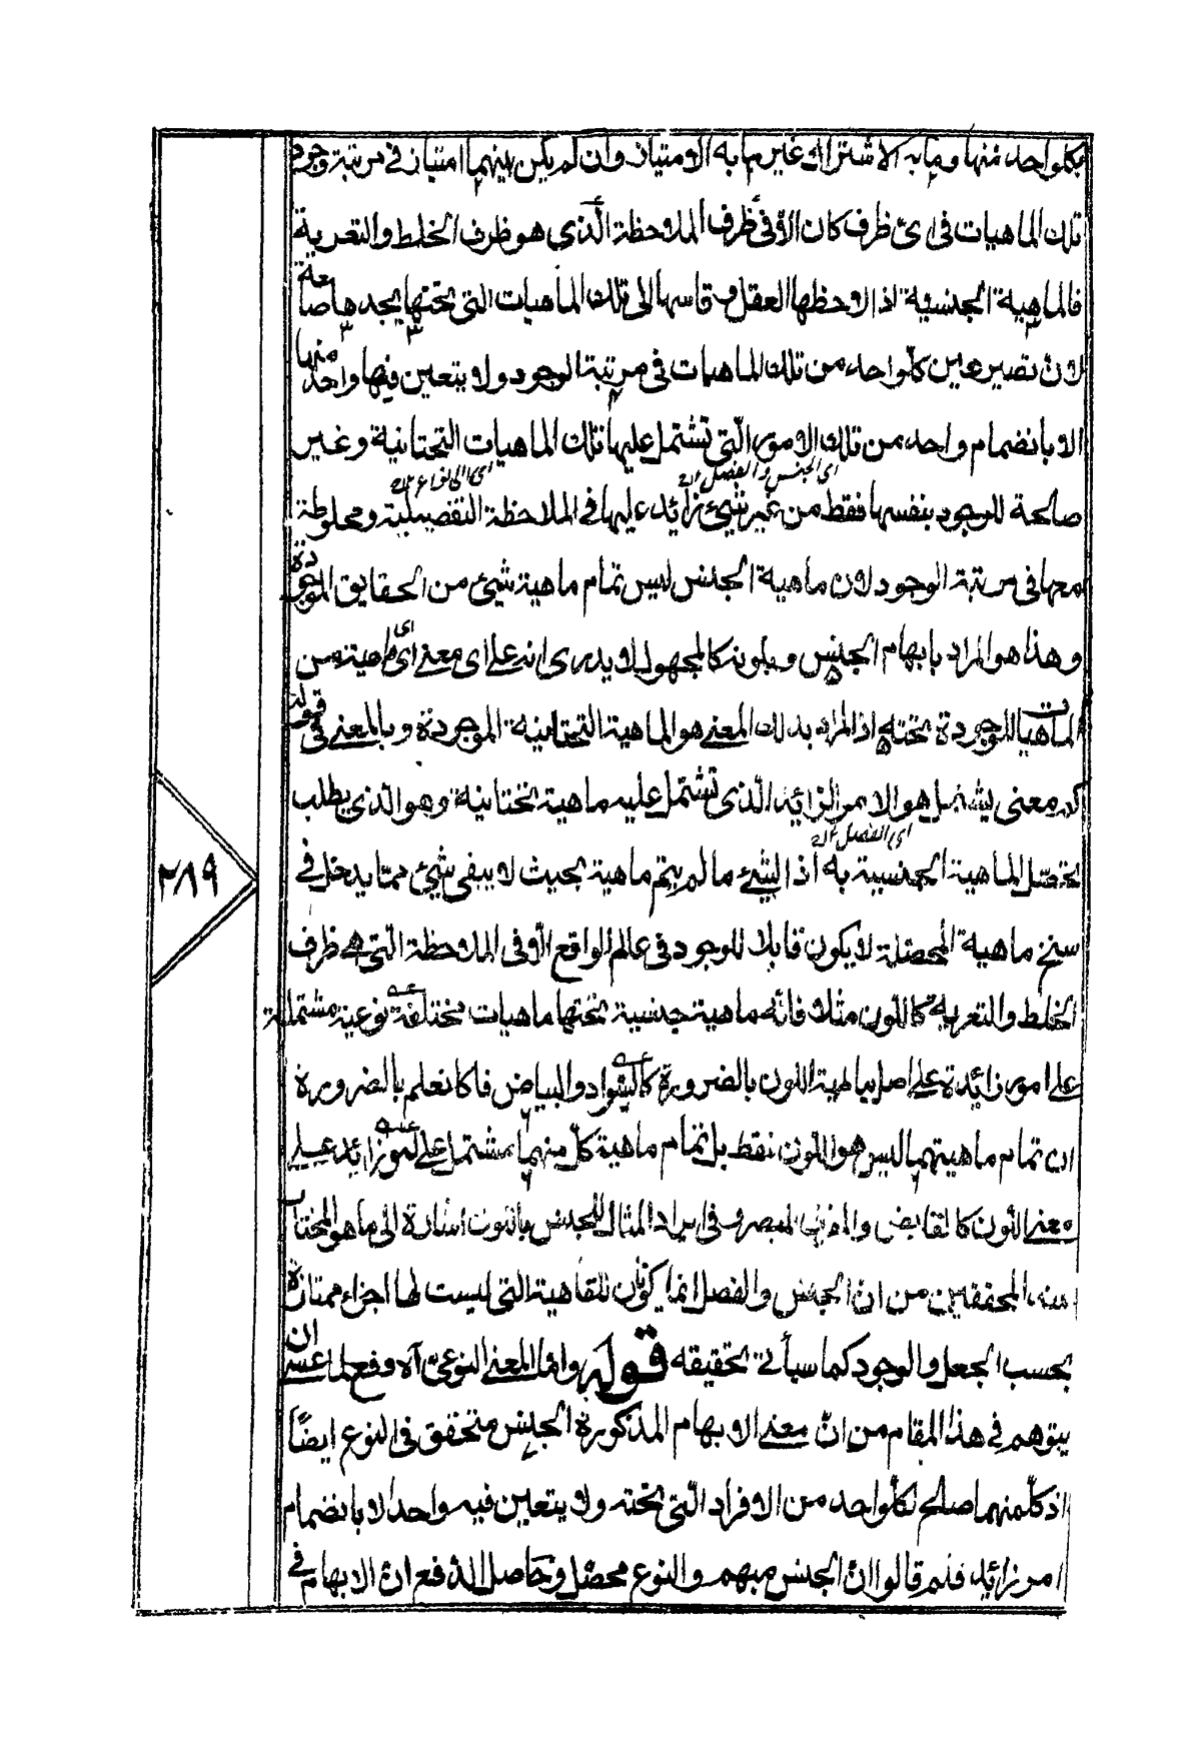 بكلواحد منها وما به الاشتراك غير ما به الامتياز وان لم يكن بينهما امتياز في مرتبة وجود
تلك الماهيات في اى ظرف كان الا في ظرف الملاحظة الذي هو ظرف الخلط والتعرية
فالماهية الجنسية اذا لاحظها العقل وقاسها الى تلك الماهيات التي تحتها يجدها صالحة
لان تصير عين كلواحد من تلك الماهيات في مرتبة الوجود ولا يتعين فيها واحد منها
الا بانضمام واحد من تلك الامور التي تشتمل عليها تلك الماهيات التحتانية وغير
اى الجنس والفصل
صالحة للوجود بنفسها فقط من غير شيئ زائد عليها في الملاحظة التفصيلية ومخلوطة
معها في مرتبة الوجود لان ماهية الجنس ليس تمام ماهية شيئ من الحقايق الموجودة
وهذا هو المراد بابهام الجنس وبكونه كالمجهول لا يدرى انه على اى معنى اى ماهية من
الماهيات الموجودة تحته اذ المراد بذلك المعنى هو الماهية التحتانية الموجودة وبالمعنى في قوله
كم معنى يشتمل هو الامر الزائد الذى تشتمل عليه ماهية تحتانية وهو الذى يطلب
اى الفصل
تحصل الماهية الجنسية به اذ الشئ ما لم يتم ماهية بحيث لا يبقى شيئ مما يدخل في
سنخ ماهية المحصلة لا يكون قابلا للوجود في عالم الواقع الا في الملاحظة التي هي ظرف
الخلط والتعرية كاللون مثلا فانه ماهية جنسية تحتها ماهيات مختلفة نوعية مشتملة
على امور زائدة على اصل ماهية اللون بالضرورة كالسواد والبياض فانا نعلم بالضرورة
ان تمام ماهيتهما ليس هو اللون فقط بل تمام ماهية كل منهما مشتمل على امور زائد على
معنى اللون كالقابض والمفرق للبصر وفي ايراد المثال للجنس باللون اشارة الى ما هو المختار
عند المحققين من ان الجنس والفصل انما يكونان للماهية التي ليست لها اجزاء ممتازة
بحسب الجعل والوجود كما سيأتي تحقيقه قوله واما المعنى النوعى آه دفع لما عسى ان
يتوهم في هذا المقام من ان معنى الابهام المذكورة الجنس متحقق في النوع ايضًا
اذ كل منهما صالح لكلواحد من الافراد التي تحته ولا يتعين فيه واحد الا بانضمام
امر زائد فلم قالوا ان الجنس مبهم والنوع محصل وحاصل الدفع ان الابهام في
٢٨٩